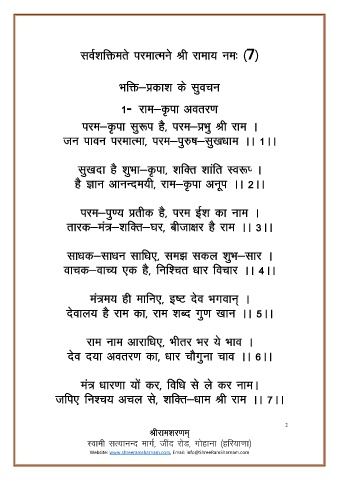 सर्वशक्तिमते परमात्मने श्री रामाय नमः (7)
भक्ति–प्रकाश के सुवचन
1- राम–कृपा अवतरण
परम–कृपा सुरूप है, परम–प्रभु श्री राम ।
जन पावन परमात्मा, परम–पुरुष–सुखधाम ।। 1।।
सुखदा है शुभा–कृपा, शक्ति शांति स्वरूप ।
है ज्ञान आनन्दमयी, राम–कृपा अनूप ।। 2।।
परम–पुण्य प्रतीक है, परम ईश का नाम ।
तारक–मंत्र–शक्ति–घर, बीजाक्षर है राम ।। 3।।
साधक–साधन साधिए, समझ सकल शुभ–सार ।
वाचक–वाच्य एक है, निश्चित धार विचार ।। 4।।
मंत्रमय ही मानिए, इष्ट देव भगवान् ।
देवालय है राम का, राम शब्द गुण खान ।। 5।।
राम नाम आराधिए, भीतर भर ये भाव ।
देव दया अवतरण का, धार चौगुना चाव ।। 6।।
मंत्र धारणा यों कर, विधि से ले कर नाम।
जपिए निश्चय अचल से, शक्ति–धाम श्री राम ।। 7।।
2
श्रीरामशरणम्
स्वामी सत्यानन्द मार्ग, जींद रोड, गोहाना (हरियाणा)
Website: www.shreeramsharnam.com, Email: info@ShreeRamSharnam.com